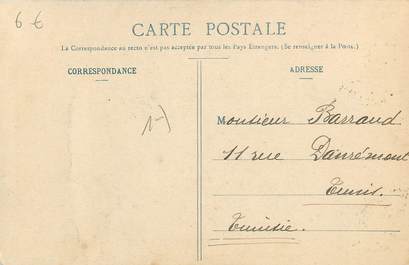 6 €
CARTE POSTALE
(La Correspondance au recto n'est pas acceptée par tous les Pays Etrangers. (Se renseigner à la Poste.)
CORRESPONDANCE
ADRESSE
Monsieur Barraud
11 rue Danrémont
Tunis.
Tunisie.